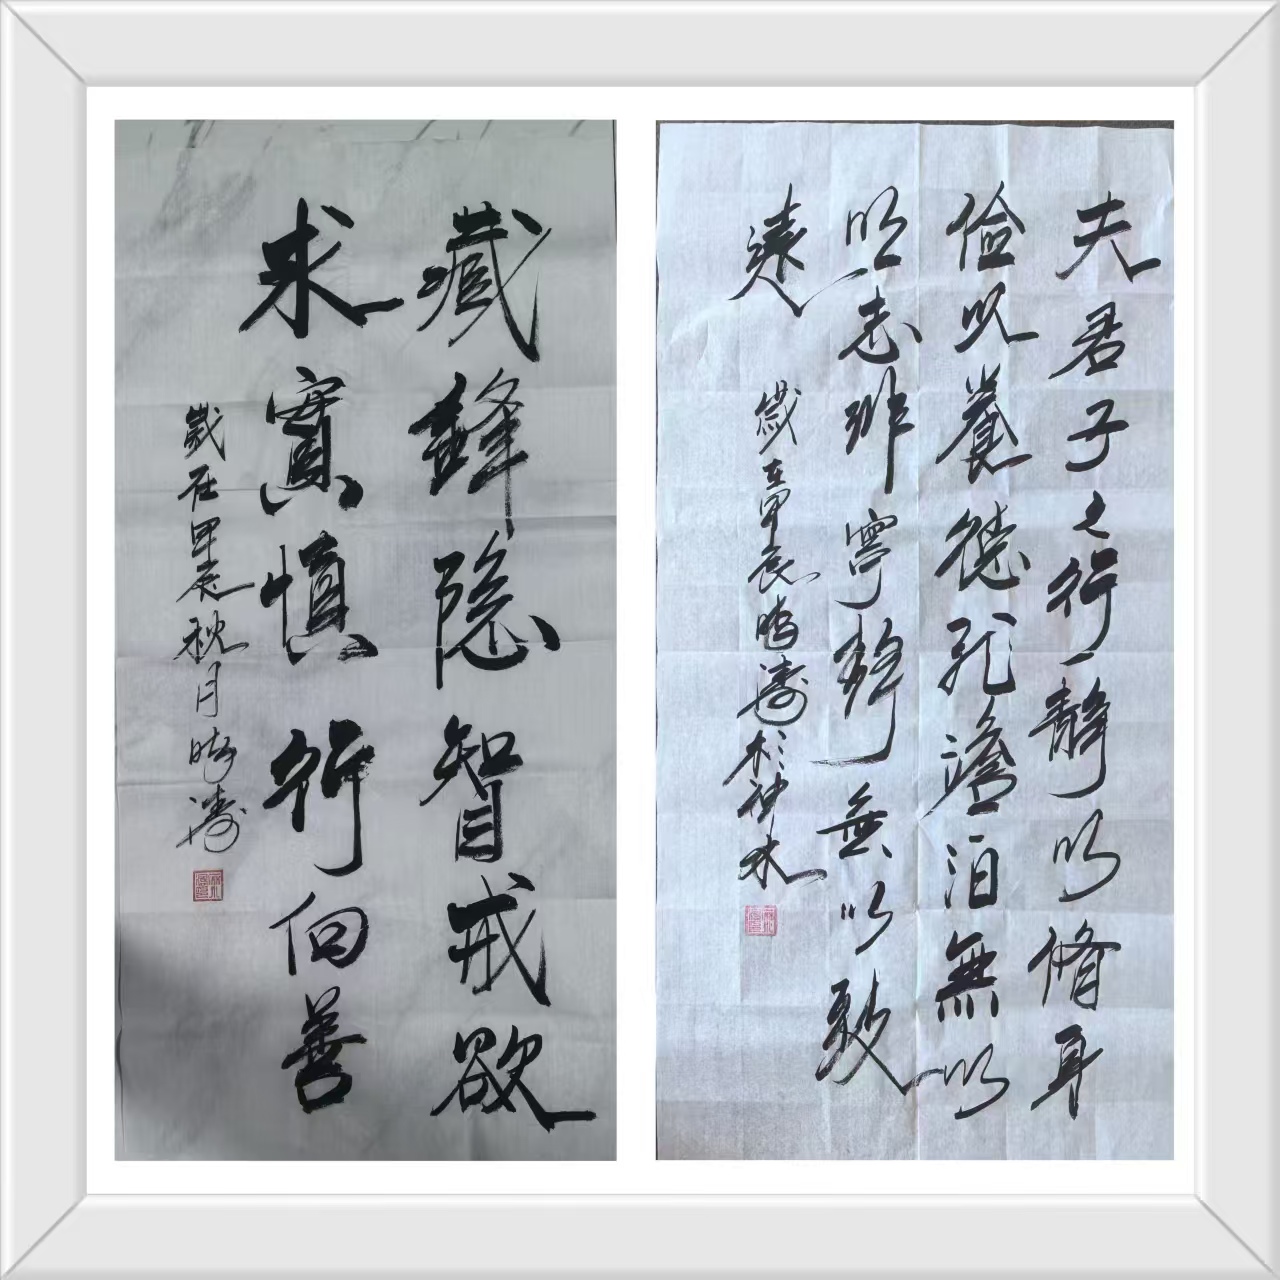 藏鋒隐智戒欲
求實慎行向善
歲在甲辰秋月濤
夫君子之行靜以脩身
儉以養德非澹泊無以
明志非寧靜無以致
遠
歲在甲辰濤於神木